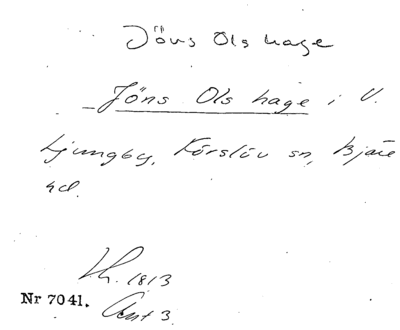 Jöns Ols hage
Jöns Ols hage i V.
Ljungby, Förslöv sn, Bjäre
hd.
Lh. 1813
Nr 7041. Akt 3